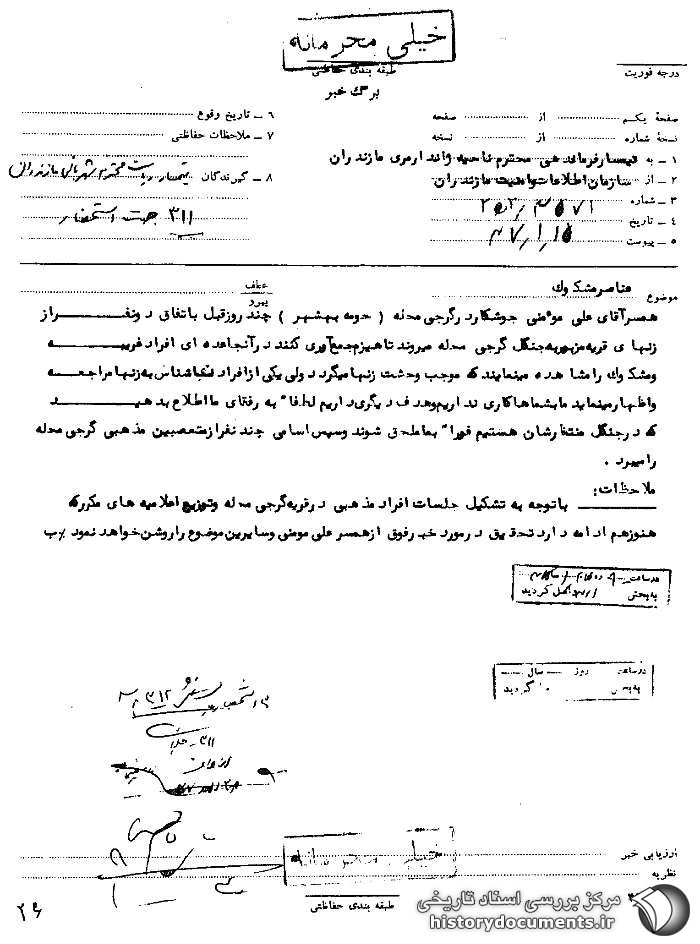 خیلی محرمانه
طبقه بندی حفاظتی
درجه فوریت
برگ خبر
صفحهٔ یکم از صفحه
نسخهٔ شماره از نسخه
۱ ــ به تیمسار فرماندهی محترم ناحیه ژاندارمری مازندران
۲ ــ از سازمان اطلاعات و امنیت مازندران
۳ ــ شماره
۴ ــ تاریخ ۴۷/۱/۱۵
۵ ــ پیوست
۶ ــ تاریخ وقوع
۷ ــ ملاحظات حفاظتی
۸ ــ گیرندگان تیمسار ریاست محترم شهربانی مازندران
۳۱۱ جهت استحضار
موضوع عناصر مشکوک
عطف
پیرو
همسر آقای علی مومنی جوشکار در گرجی محله ( حومه بهشهر ) چند روز قبل باتفاق دو نفر از
زنهای قریه مزبور به جنگل گرجی محله میروند تا هیزم جمع آوری کنند در آنجا عده ای افراد غریبه
و مشکوک را مشاهده مینمایند که موجب وحشت زنها میگردد ولی یکی از افراد ناشناس به زنها مراجعه
و اظهار مینماید ما بشما ها کاری نداریم و هدف دیگری داریم لطفا" به رفقای ما اطلاع بدهید
که در جنگل منتظرشان هستیم فورا" بما ملحق شوند و سپس اسامی چند نفر از متعصبین مذهبی گرجی محله
را میبرد .
ملاحظات:
با توجه به تشکیل جلسات افراد مذهبی در قریه گرجی محله و توزیع اعلامیه های مکرر که
هنوز هم ادامه دارد تحقیق در مورد خبر فوق از همسر علی مومنی و سایرین موضوع را روشن خواهد نمود
در ساعت روز سال
به بخش گردید
ارزیابی خبر
نظریه
خیلی محرمانه
طبقه بندی حفاظتی
۲۶
مرکز بررسی اسناد تاریخی
historydocuments.ir